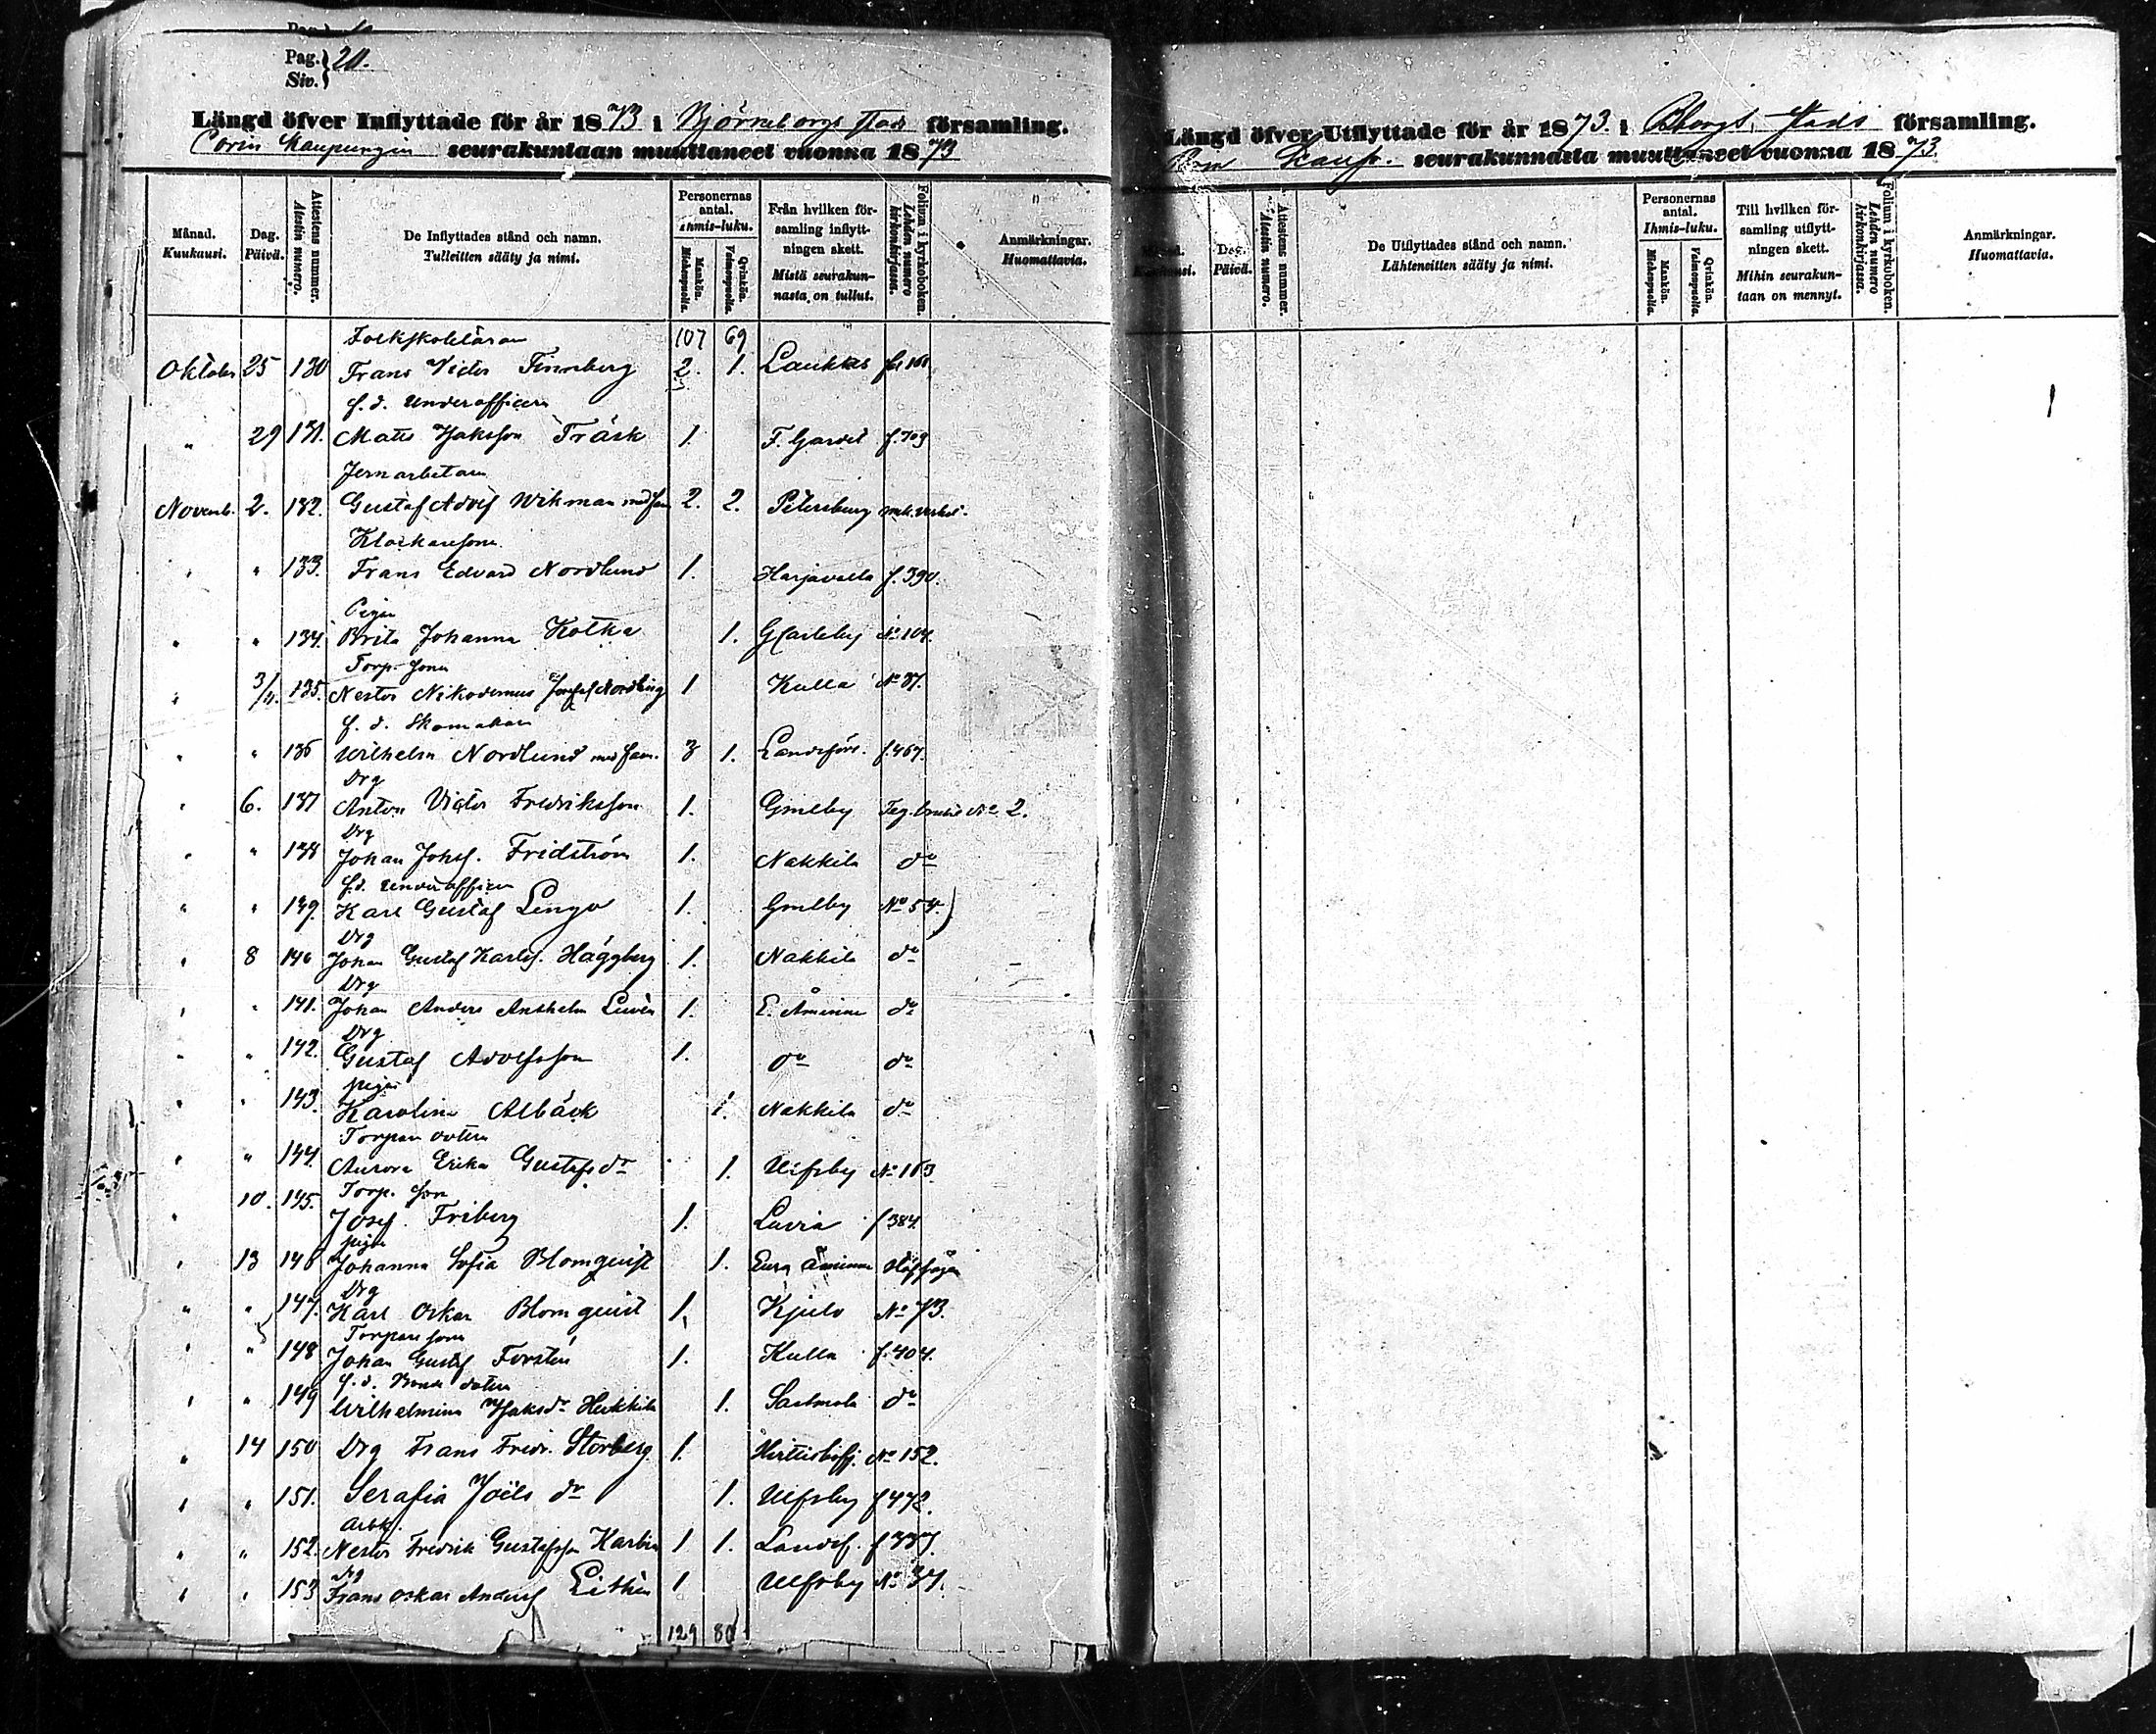 Pag. 20.
Siv.
Längd öfver Inflyttade för år 1873 i Björneborgs stads församling.
Porin Kaupungin seurakuntaan muuttaneet vuonna 1873
Månad. Kuukausi. Dag. Päivä. Attestens nummer. Atestin numero. De Inflyttades stånd och namn. Tulleitten sääty ja nimi. Personernas antal. Ihmis-luku. Mankön. Miehenpuolia. Qvinkön. Vaimonpuolia. Från hvilken församling inflyttningen skett. Mistä seurakunnasta on tullut. Folium i kyrkoboken. Lehden numero kirkonkirjassa. Anmärkningar. Huomattavia.
Folkskoleläraren 107 69
Oktober 25 130 Frans Victor Finnberg 2. 1. Laukkas fol 161
f. d. Underofficern
" 29 131. Matts Isaksson Träsk 1. F. Gardet f. 709
Jernarbetaren
Novemb. 2. 132. Gustaf Adolf Wikman med fam 2. 2. Petersburg
Klockaresonen
" " 133. Frans Edvard Nordlund 1. Harjavalta f. 390.
Pigan
" " 134. Brita Johanna Kotka 1. GCarleby No 104.
Torp. sonen
" 3/11. 135. Nestor Nikodemus Nordling 1 Kulla No 37.
f. d. Skomakare
" " 136 Wilhelm Nordlund med fam. 3 1. Landsförs. f. 467.
Drg
" 6. 137 Anton Victor Fredriksson 1. Gmlby Teg. bruket No 2.
Drg
" " 138 Johan Johsf. Fridström 1. Nakkila do
f.d. underofficer
" " 139. Karl Gustaf Lengo 1. Gmlby No 54.
Drg
" 8 140 Johan Gustaf Karlsf. Häggberg 1. Nakkila do
Drg
" " 141. Johan Anders Anshelm Luvén 1. E. Åminne do
Drg
" " 142. Gustaf Adolfsson 1. do do
pigan
" " 143. Karolina Albäck 1. Nakkila do
Torpare dotern
" " 144. Aurora Erika Gustafs dr 1. Ulfsby No 163.
Torp. son
" 10. 145. Josef Friberg 1. Luvia f 384.
pigan
" 13 146 Johanna Sofia Blomqvist 1. Eura Åminne
Drg
" " 147. Karl Oskar Blomquist 1. Kjulo No 73.
Torpare sonen
" " 148 Johan Gustaf Forstén 1. Kulla f. 404.
f. d. Bonde dotern
" " 149 Wilhelmina Isaksdr Heikkilä 1. Sastmola do
" 14 150 Drg Frans Fredr. Storberg 1. Hvittisbofj. No 152.
" " 151. Serafia Joëls dr 1. Ulfsby f 472.
Arbk.
" " 152. Nestor Fredrik Gustafsson Karlin 1 1. Landsf. f 337.
Drg
" " 153 Frans Oskar Andersf Lithén 1 Ulfsby No 37.
129 80
Längd öfver Utflyttade för år 1873. i Bborgs. stads församling.
Porin Kaup. seurakunnasta muuttaneet vuonna 1873.
Månad. Kuukausi. Dag. Päivä. Attestens nummer. Atestin numero. De Utflyttades stånd och namn. Lähteneitten sääty ja nimi. Personernas antal. Ihmis-luku. Mankön. Miehenpuolia. Qvinkön. Vaimonpuolia. Till hvilken församling utflyttningen skett. Mihin seurakuntaan on mennyt. Folium i kyrkoboken. Lehden numero kirkonkirjassa. Anmärkningar. Huomattavia.